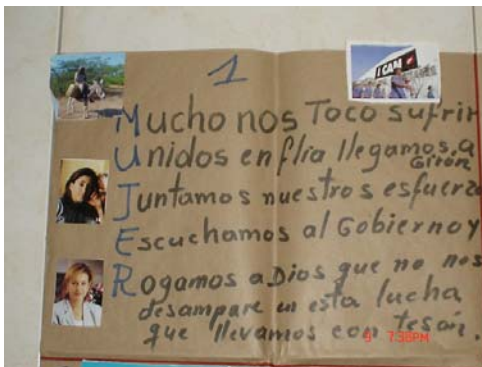 1
I CAM
Mucho nos Toco sufrir
Unidos en flia llegamos a
Girón
Juntamos nuestros esfuerzo
Escuchamos al Gobierno y
Rogamos a Dios que no nos
desampare en esta lucha
que llevamos con tesón.
9 7:38PM